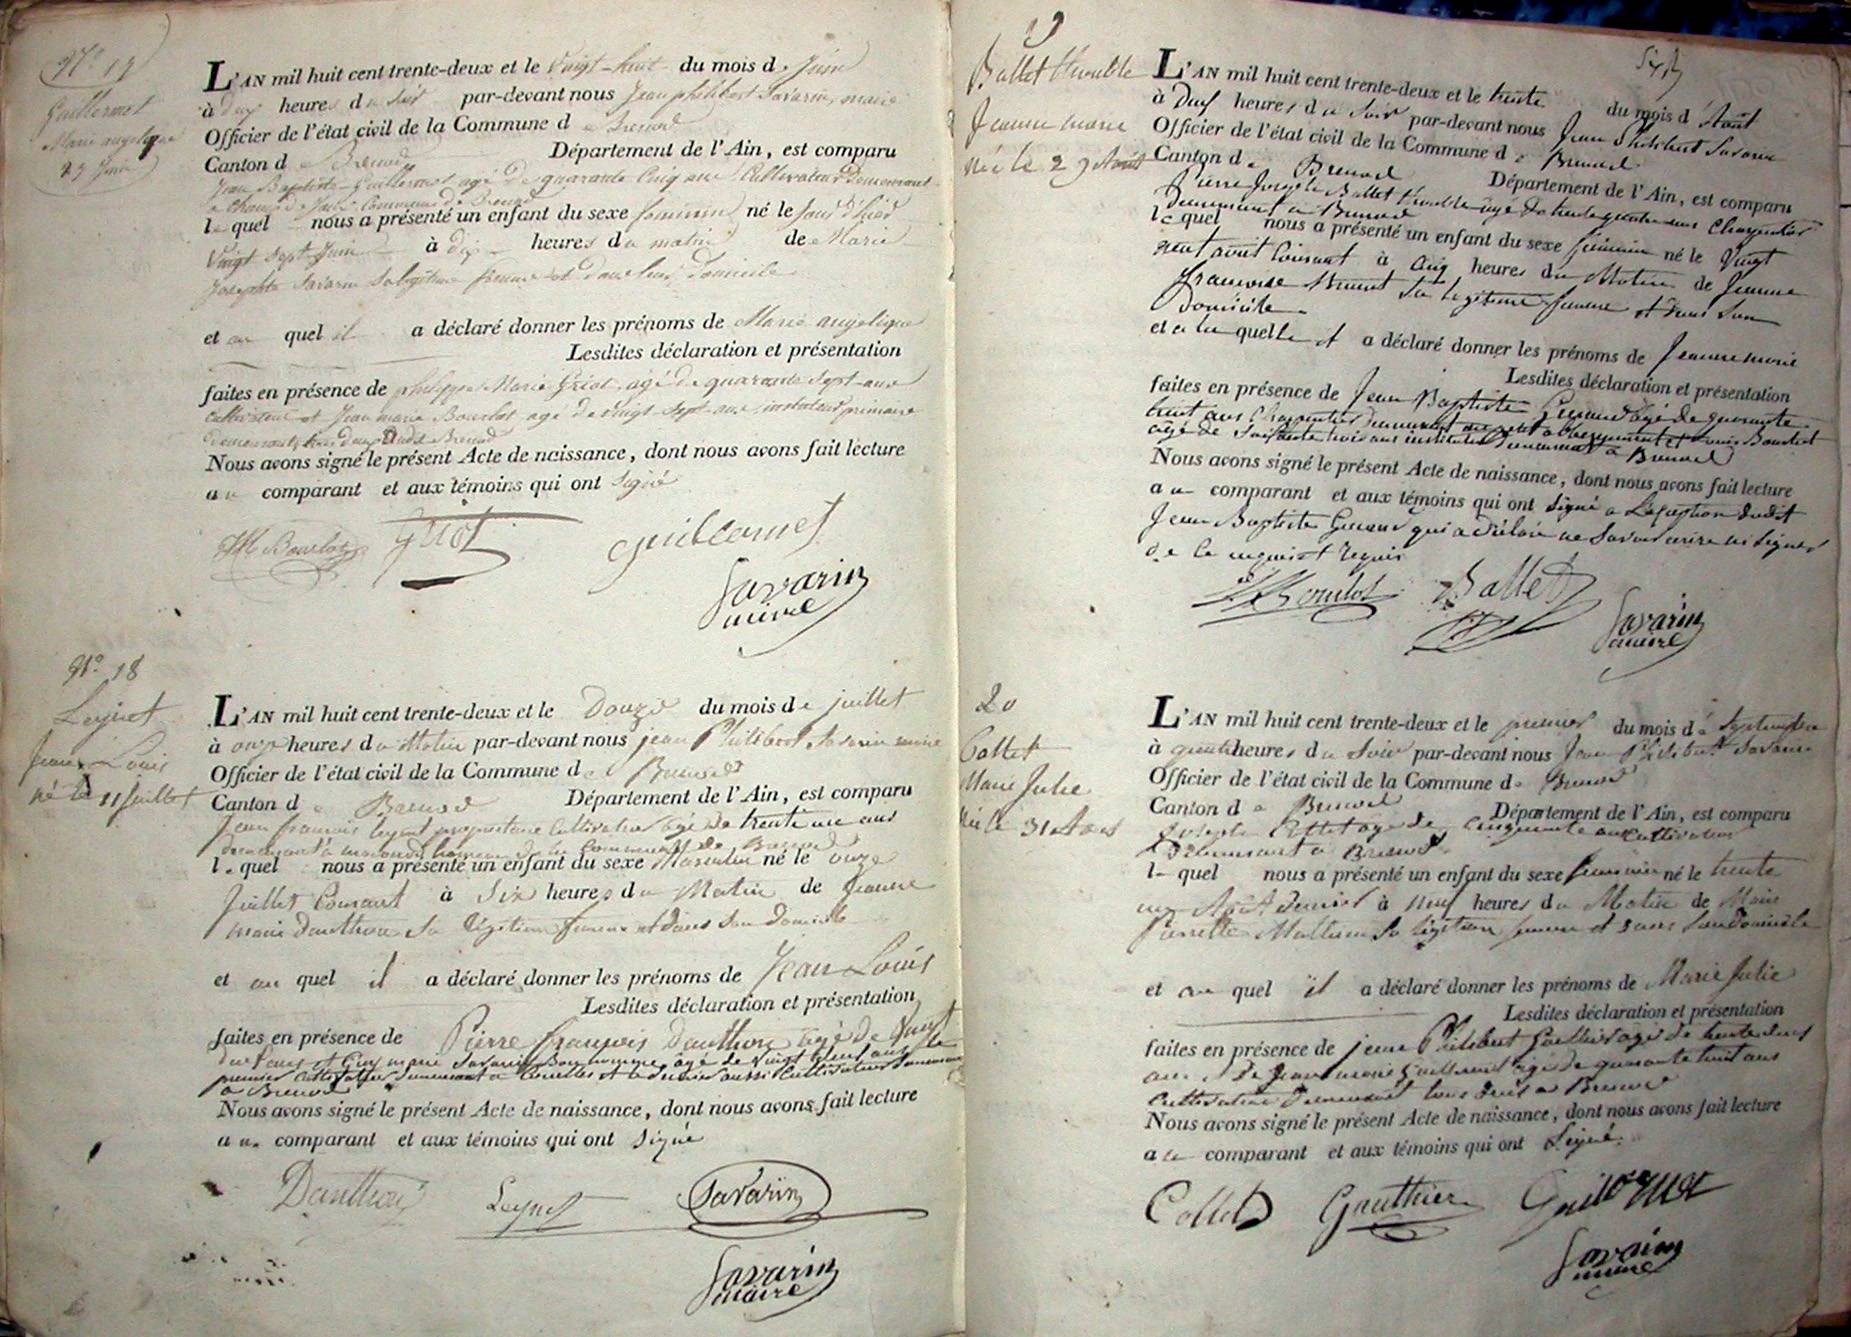 N.º 17
Guillermet
Marie angelique
27 Juin
L'AN mil huit cent trente-deux et le Vingt-huit du mois de Juin
à deux heures du soir par-devant nous Jean philibert Savarin, maire
Officier de l'état civil de la Commune de Brenod
Canton de Brenod Département de l'Ain, est comparu
Jean Baptiste Guillermet agé de quarante Cinq ans Cultivateur Demeurant
Commune de Brenod
lequel nous a présenté un enfant du sexe feminin né le jour d'hier
Vingt sept Juin à dix heures du matin de Marie
Josephte Savarin Sa légitime femme et dans leur domicile
et au quel il a déclaré donner les prénoms de Marie angelique
Lesdites déclaration et présentation
faites en présence de philippe Marie Griot agé de quarante sept ans
Cultivateur et Jean marie Bourlot agé de vingt sept ans instituteur primaire
demeurants tous deux Brenod
Nous avons signé le présent Acte de naissance, dont nous avons fait lecture
au comparant et aux témoins qui ont signé
JM Bourlot Griot guillermet
Savarin
maire
N.º 18
Leynet
Jean Louis
né le 11 Juillet
L'AN mil huit cent trente-deux et le Douze du mois de juillet
à onze heures du Matin par-devant nous jean Philibert Savarin maire
Officier de l'état civil de la Commune de Brenod
Canton de Brenod Département de l'Ain, est comparu
Jean francois leynet propriétaire Cultivateur agé de trente un ans
demeurant à la Commune de Brenod
lequel nous a présenté un enfant du sexe Masculin né le onze
Juillet Courant à Six heures du Matin de Jeanne
marie Dauthon Sa légitime femme et dans Son Domicile
et au quel il a déclaré donner les prénoms de Jean Louis
Lesdites déclaration et présentation
faites en présence de Pierre françois Dauthon agé de Vingt
deux ans et Guy marie Savarin Bonhomme agé de vingt huit ans le
premier Cultivateur Demeurant a et le dernier aussi Cultivateur Demeurant
a Brenod
Nous avons signé le présent Acte de naissance, dont nous avons fait lecture
au comparant et aux témoins qui ont signé
Dauthon Leynet Savarin
Savarin
maire
19
Ballet thouble
Jeanne marie
née le 29 Août
L'AN mil huit cent trente-deux et le trente du mois d'Août
à Deux heures du Soir par-devant nous Jean Philibert Savarin
Officier de l'état civil de la Commune de Brenod
Canton de Brenod Département de l'Ain, est comparu
Pierre Joseph Ballet thouble agé de trente quatre ans Charpentier
Demeurant a Brenod
lequel nous a présenté un enfant du sexe feminin né le Vingt
neuf août Courant à Cinq heures du Matin de Jeanne
francoise Brunet Sa légitime femme et dans Son
Domicile
et a la quelle il a déclaré donner les prénoms de Jeanne marie
Lesdites déclaration et présentation
faites en présence de Jean Baptiste agé de quarante
huit ans Charpentier Demeurant au petit abbergement et Bourlot
agé de Soixante trois ans instituteur Demeurant a Brenod
Nous avons signé le présent Acte de naissance, dont nous avons fait lecture
au comparant et aux témoins qui ont Signé a L'exception dudit
Jean Baptiste qui a déclaré ne Savoir écrire ni Signer
de ce enquis et requis
Bourlot Ballet
Savarin
maire
20
Collet
Marie Julie
née le 31 Août
L'AN mil huit cent trente-deux et le premier du mois de Septembre
à quatre heures du Soir par-devant nous Jean Philibert Savarin
Officier de l'état civil de la Commune de Brenod
Canton de Brenod Département de l'Ain, est comparu
Joseph Collet agé de Cinquante ans Cultivateur
Demeurant a Brenod
lequel nous a présenté un enfant du sexe feminin né le trente
un Août dernier à Neuf heures du Matin de Marie
Pierrette Sa légitime femme et dans Son Domicile
et au quel il a déclaré donner les prénoms de Marie Julie
Lesdites déclaration et présentation
faites en présence de jean Philibert Gauthier agé de trente deux
ans et De Jean marie Guillermet agé de quarante huit ans
Cultivateur Demeurant tous deux a Brenod
Nous avons signé le présent Acte de naissance, dont nous avons fait lecture
au comparant et aux témoins qui ont Signé.
Collet Gauthier Guillermet
Savarin
maire